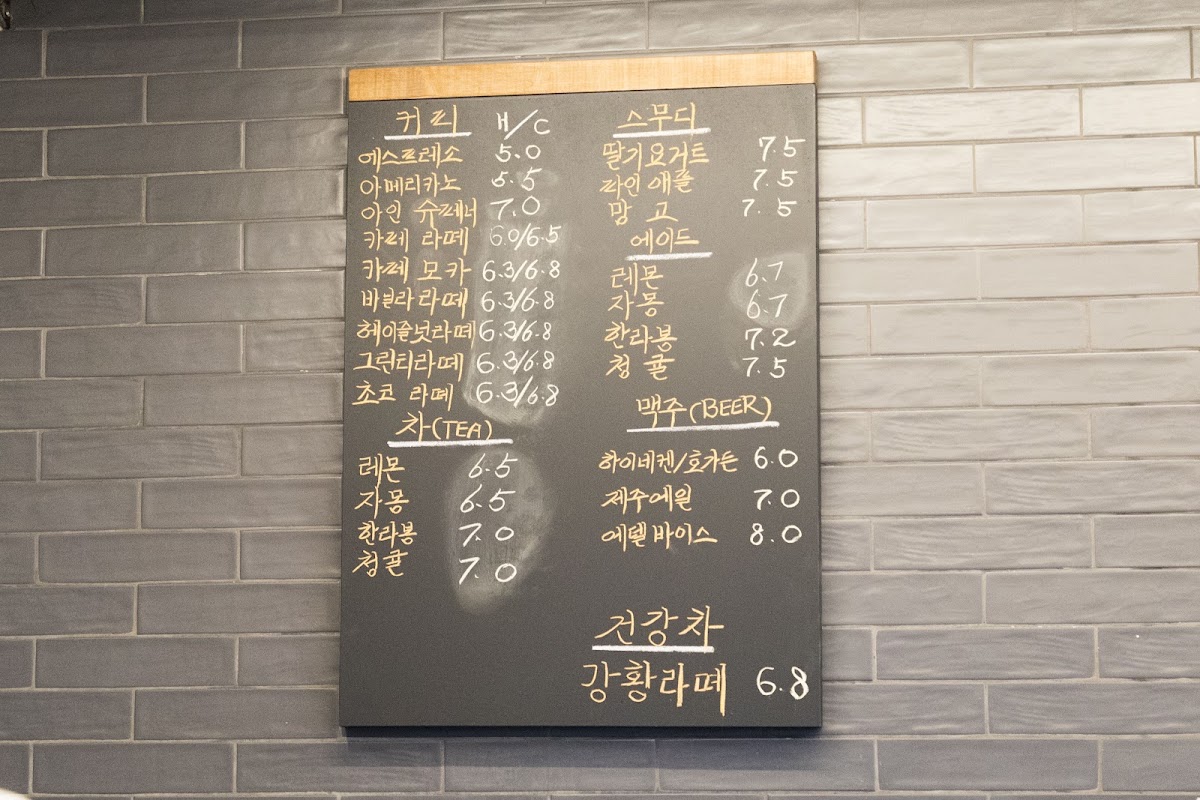 커피 H/C
에스프레소 5.0
아메리카노 5.5
아인 슈페너 7.0
카페 라떼 6.0/6.5
카페 모카 6.3/6.8
바닐라 라떼 6.3/6.8
헤이즐넛라떼 6.3/6.8
그린티라떼 6.3/6.8
초코 라떼 6.3/6.8
차(TEA)
레몬 6.5
자몽 6.5
한라봉 7.0
청귤 7.0
스무디
딸기요거트 7.5
파인애플 7.5
망고 7.5
에이드
레몬 6.7
자몽 6.7
한라봉 7.2
청귤 7.5
맥주(BEER)
하이네켄/호가든 6.0
제주에일 7.0
에델바이스 8.0
건강차
강황라떼 6.8